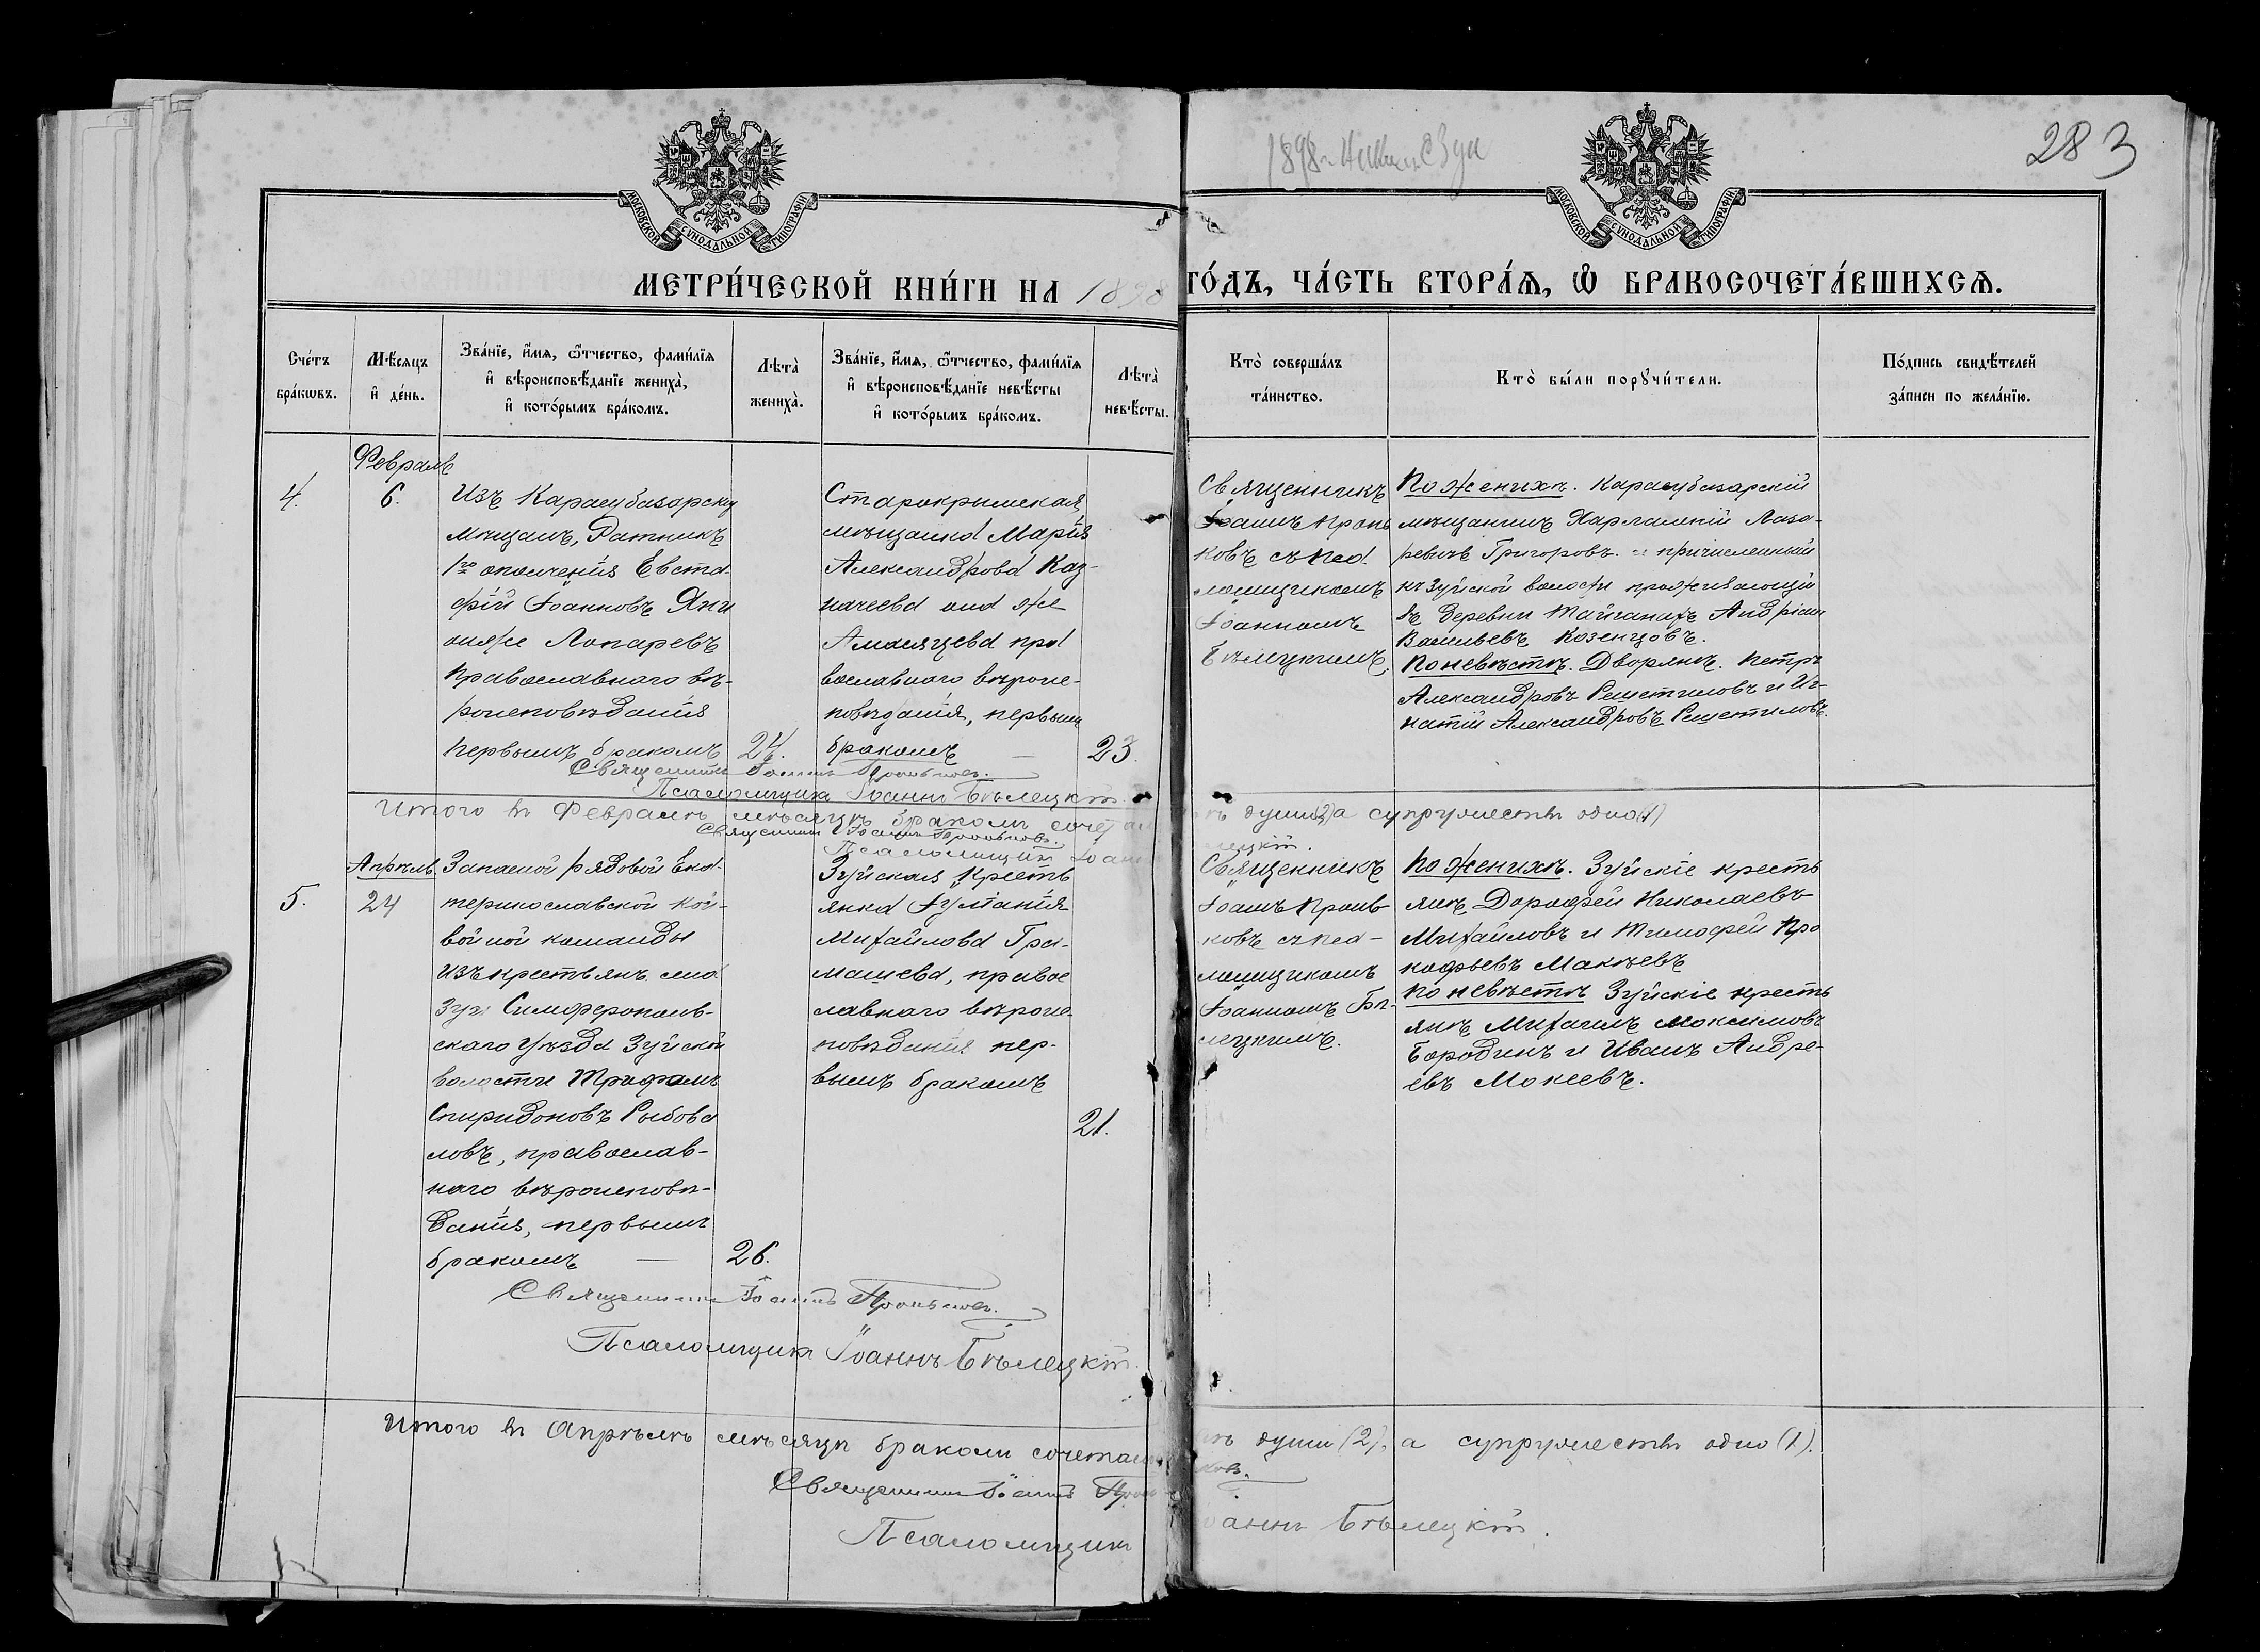 283
МОСКОВСКОЙ СѴНОДАЛЬНОЙ ТИПОГРАФІИ
МОСКОВСКОЙ СѴНОДАЛЬНОЙ ТИПОГРАФІИ
МЕТРИ́ЧЕСКОЙ КНИ́ГИ НА 1898 ГО́ДЪ, ЧА́СТЬ ВТОРА́Я, Ѽ БРАКОСОЧЕТА́ВШИХСЯ.
Сче́тъ
бра́кѡвъ.
Мѣ́сяцъ
и҆ де́нь.
Зва́нїе, и҆́мя, ѻ҆́тчество, фами́лїя
и҆ вѣроисповѣ́данїе жениха̀,
и҆ кото́рымъ бра́комъ.
Лѣта̀
жениха̀.
Зва́нїе, и҆́мя, ѻ҆́тчество, фами́лїя
и҆ вѣроисповѣ́данїе невѣ́сты
и҆ кото́рымъ бра́комъ.
Лѣта̀
невѣ́сты.
Кто̀ соверша́лъ
та́инство.
Кто̀ бы́ли порꙋчи́тели.
По́дпись свидѣ́телей
за́писи по жела́нїю.
Февраль
4.
6.
Изъ Карасубазарску
мѣщанъ, Ратникъ
1го ополченія Евста-
фій Іоанновъ Яни
онъ же Лопаревъ
православнаго вѣ-
роисповѣданія
первымъ бракомъ
24.
Старокрымская
мѣщанка Марія
Александрова Каз-
начеева она же
пра
вославнаго вѣроис-
повѣданія, первымъ
бракомъ
23.
Священникъ
Іоаннъ Пронь
ковъ съ пса
ломщикомъ
Іоанномъ
Бѣлецкимъ.
По женихѣ. Карасубазарскій
мѣщанинъ Харлампій Лаза-
ревъ Григоровъ. и причисленный
къ Зуйской волости проживающій
въ деревни Тайганахъ Андріан
Васильевъ Козенцовъ.
По невѣстѣ. Дворянъ. Петръ
Александровъ Решетиловъ и Иг-
натій Александровъ Решетиловъ.
Священникъ Іоаннъ Проньковъ.
Псаломщикъ Іоаннъ Бѣлецкій.
Итого въ Февралѣ мѣсяцѣ бракомъ сочетан
души (2) а супружествъ одно (1)
Священникъ Іоаннъ Проньковъ.
Псаломщикъ Іоанн
лецкій.
Апрѣль
5.
24
Запасной рядовой Ека-
теринославской кон-
войной команды
изъ крестьянъ села
Зуи Симферополь-
скаго уѣзда Зуйской
волости Трифонъ
Спиридоновъ Рыбова
ловъ, православ-
наго вѣроисповѣ-
данія, первымъ
бракомъ
26.
Зуйская Кресть
янка Іуліанія
Михайлова Гри-
машева, правос
лавнаго вѣроис-
повѣданія пер-
вымъ бракомъ
21.
Священникъ
Іоаннъ Пронь
ковъ съ пса-
ломщикомъ
Іоанномъ Бѣ-
лецкимъ.
По женихѣ. Зуйскіе кресть
янъ, Дорофей Николаевъ
Михайловъ и Тимофей Про
кофьевъ Макѣевъ
по невѣстѣ Зуйскіе кресть
янъ Михаилъ Максимовъ
Бородинъ и Иванъ Андре-
евъ Мокеевъ.
Священникъ Іоаннъ Проньковъ.
Псаломщикъ Іоаннъ Бѣлецкій.
Итого въ Апрѣлѣ мѣсяцѣ бракомъ сочетан
души (2), а супружествъ одно (1).
Священникъ Іоаннъ Проньковъ.
Псаломщикъ Іоаннъ Бѣлецкій.